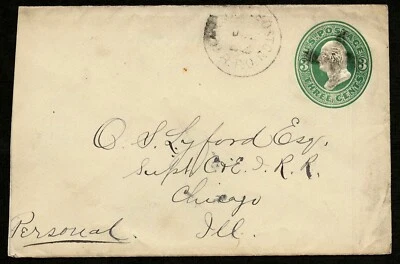 U.S. POSTAGE
3 3
THREE CENTS
O. S. Lyford Esq.
Supt C & E. I. R. R.
Chicago
Ill.
Personal.